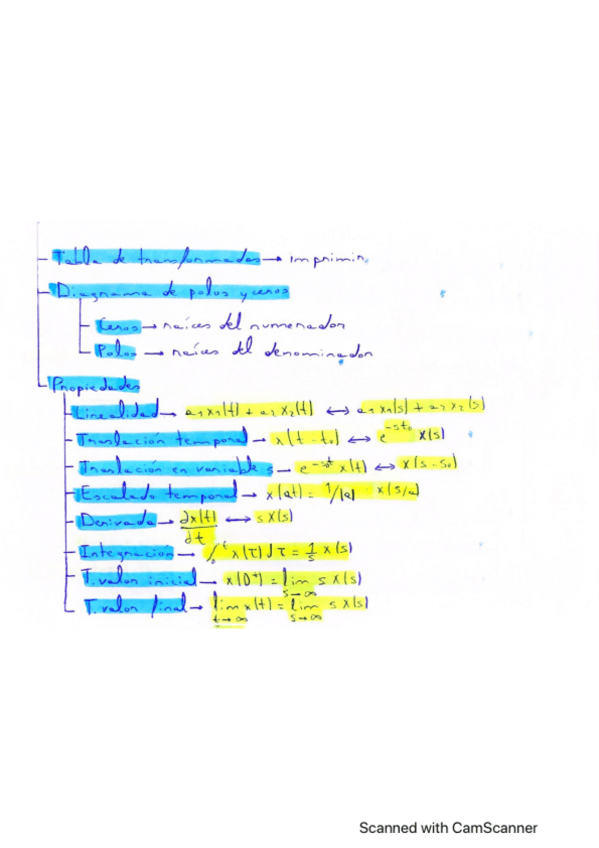 Tabla de transformadas → imprimir
Diagrama de polos y ceros
Ceros → raíces del numerador
Polos → raíces del denominador
Propiedades
Linealidad → a₁x₁(t) + a₂x₂(t) ↔ a₁x₁(s) + a₂x₂(s)
Traslación temporal → x(t-t₀) ↔ e^-st₀ x(s)
Traslación en variable s → e^-s₀t x(t) ↔ x(s-s₀)
Escalado temporal → x(at) = 1/|a| x(s/a)
Derivada → ∂x(t)/∂t ↔ s x(s)
Integración → ∫₀^t x(τ)dτ = 1/s x(s)
T. valor inicial → x(0⁺) = lim s→∞ s x(s)
T. valor final → lim t→∞ x(t) = lim s→∞ s x(s)
Scanned with CamScanner